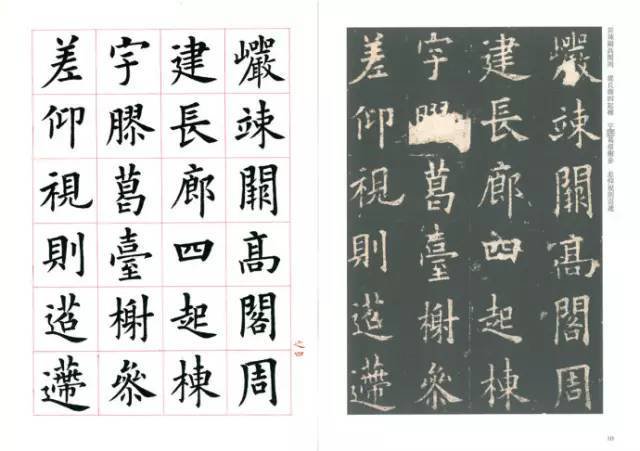 巖竦闕高閣周
建長廊四起棟
宇膠葛臺榭參
差仰視則迢遰
之四
巖竦闕高閣周
建長廊四起棟
宇膠葛臺榭參
差仰視則迢遰